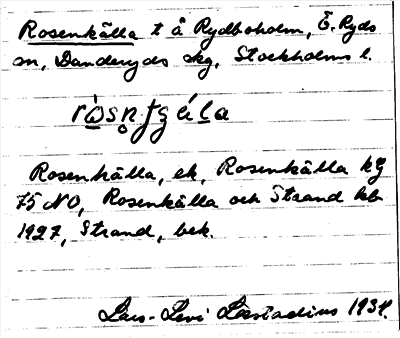 Rosenkälla t å Rydboholm, Ö. Ryds
sn, Danderyds skg, Stockholms l.
Rosenkälla, ek, Rosenkälla
75 NO, Rosenkälla och Strand
1927, Strand, bek.
Lars-Levi Læstadius 1934.